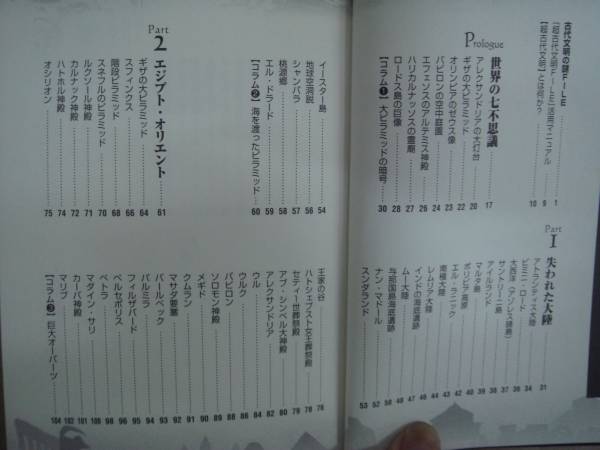 古代文明の謎FILE 1
『超古代文明FILE』活用マニュアル 9
【超古代文明】とは何か? 10
Prologue
世界の七不思議 17
アレクサンドリアの大灯台 20
ギザの大ピラミッド 22
オリンピアのゼウス像 23
バビロンの空中庭園 24
エフェソスのアルテミス神殿 26
ハリカルナッソスの霊廟 27
ロードス島の巨像 28
【コラム❶】大ピラミッドの暗号 30
Part 1
失われた大陸 31
アトランティス大陸 34
ビミニ・ロード 36
大西洋(アゾレス諸島)
サントリーニ島
アイルランド
マルタ島
ボリビア高原
エル・ラニック
南極大陸
レムリア大陸
ムー大陸
インドの海底遺跡
与那国島海底遺跡
ナン・マドール 52
スンダランド 53
イースター島 54
地球空洞説 56
シャンバラ 57
桃源郷 58
エル・ドラード 59
【コラム❷】海を渡ったピラミッド 60
Part 2
エジプト・オリエント 61
ギザの大ピラミッド 64
スフィンクス 66
階段ピラミッド 68
スネフルのピラミッド 70
ルクソール神殿 71
カルナック神殿 72
ハトホル神殿 74
オシリオン 75
王家の谷 76
ハトシェプスト女王葬祭殿 78
セティ一世葬祭殿 79
アブ・シンベル大神殿 80
アレクサンドリア 82
ウル 84
ウルク 86
バビロン 88
ソロモン神殿 89
メギド 90
クムラン 91
マサダ要塞 92
バールベック 93
パルミラ 94
フィルザバード 95
ペルセポリス 96
ペトラ 98
マダイン・サリ 100
カーバ神殿 101
マリブ 102
【コラム❸】巨大オーパーツ 104